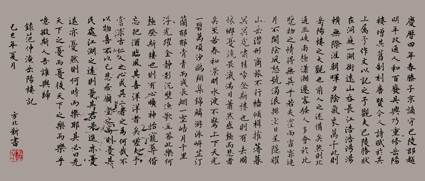 慶曆四年春滕子京謫守巴陵郡越
明年政通人和百廢具興乃重修岳陽
樓增其舊制刻唐賢今人詩賦於其
上屬予作文以記之予觀夫巴陵勝狀
在洞庭一湖銜遠山吞長江浩浩湯湯
橫無際涯朝暉夕陰氣象萬千此則
岳陽樓之大觀也前人之述備矣然則北
通巫峽南極瀟湘遷客騷人多會於此
覽物之情得無異乎若夫霪雨霏霏連
月不開陰風怒號濁浪排空日星隱曜
山岳潛形商旅不行檣傾楫摧薄暮
冥冥虎嘯猿啼登斯樓也則有去國
懷鄉憂讒畏譏滿目蕭然感極而悲者
矣至若春和景明波瀾不驚上下天光
一碧萬頃沙鷗翔集錦鱗游泳岸芷汀
蘭郁郁青青而或長煙一空皓月千里
浮光躍金靜影沉璧漁歌互答此樂何
極登斯樓也則有心曠神怡寵辱偕
忘把酒臨風其喜洋洋者矣嗟夫予
嘗求古仁人之心或異二者之為何哉不
以物喜不以己悲居廟堂之高則憂其
民處江湖之遠則憂其君是進亦憂
退亦憂然則何時而樂耶其必曰先
天下之憂而憂後天下之樂而樂乎
噫微斯人吾誰與歸
錄范仲淹岳陽樓記
己巳年夏月 方